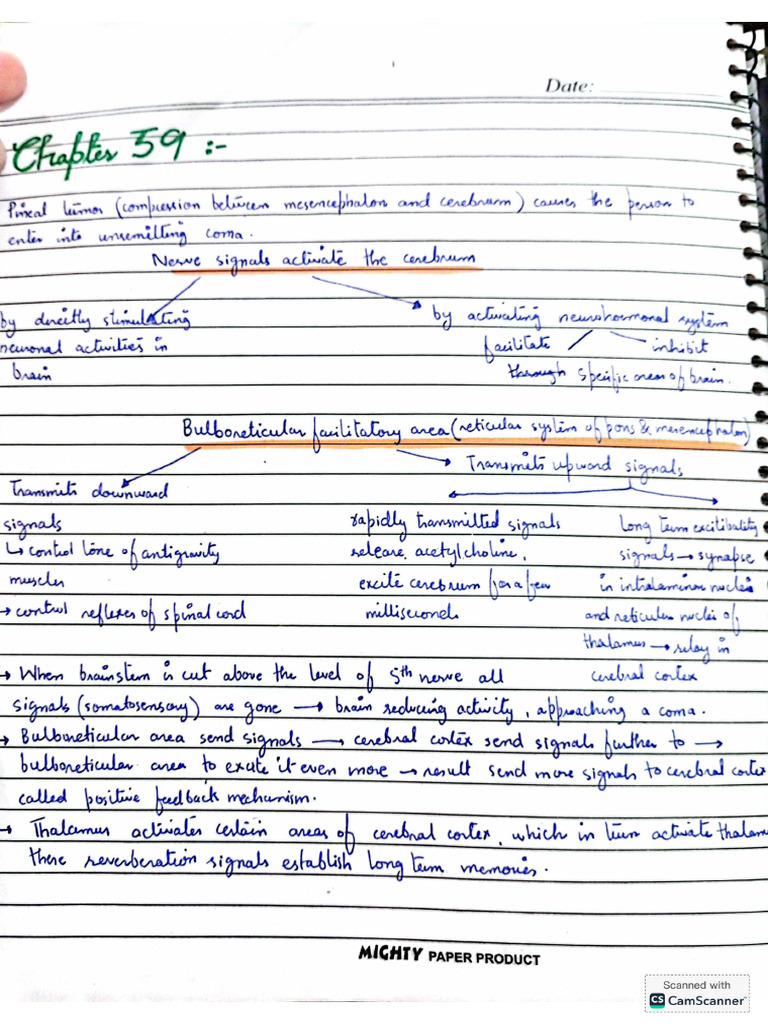 Date:
Chapter 59 :-
Pineal tumor (compression between mesencephalon and cerebrum) causes the person to
enter into unremitting coma.
Nerve signals activate the cerebrum
by directly stimulating
neuronal activities in
brain
by activating neurohormonal system
facilitate inhibit
through specific areas of brain.
Bulboreticular facilitatory area (reticular system of pons & mesencephalon)
Transmits downward
signals
↳ control tone of antigravity
muscles
→ control reflexes of spinal cord
Transmits upward signals
rapidly transmitted signals
release acetylcholine,
excite cerebrum for a few
milliseconds
Long term excitibality
signals → synapse
in intralaminar nuclei
and reticular nuclei of
thalamus → relay in
cerebral cortex
→ When brainstem is cut above the level of 5th nerve all
signals (somatosensory) are gone → brain reducing activity, approaching a coma.
→ Bulboreticular area send signals → cerebral cortex send signals further to →
bulboreticular area to excite it even more → result send more signals to cerebral cortex
called positive feedback mechanism.
→ Thalamus activates certain areas of cerebral cortex, which in turn activate thalam
these reverberation signals establish long term memories.
MIGHTY PAPER PRODUCT
Scanned with
CS CamScanner